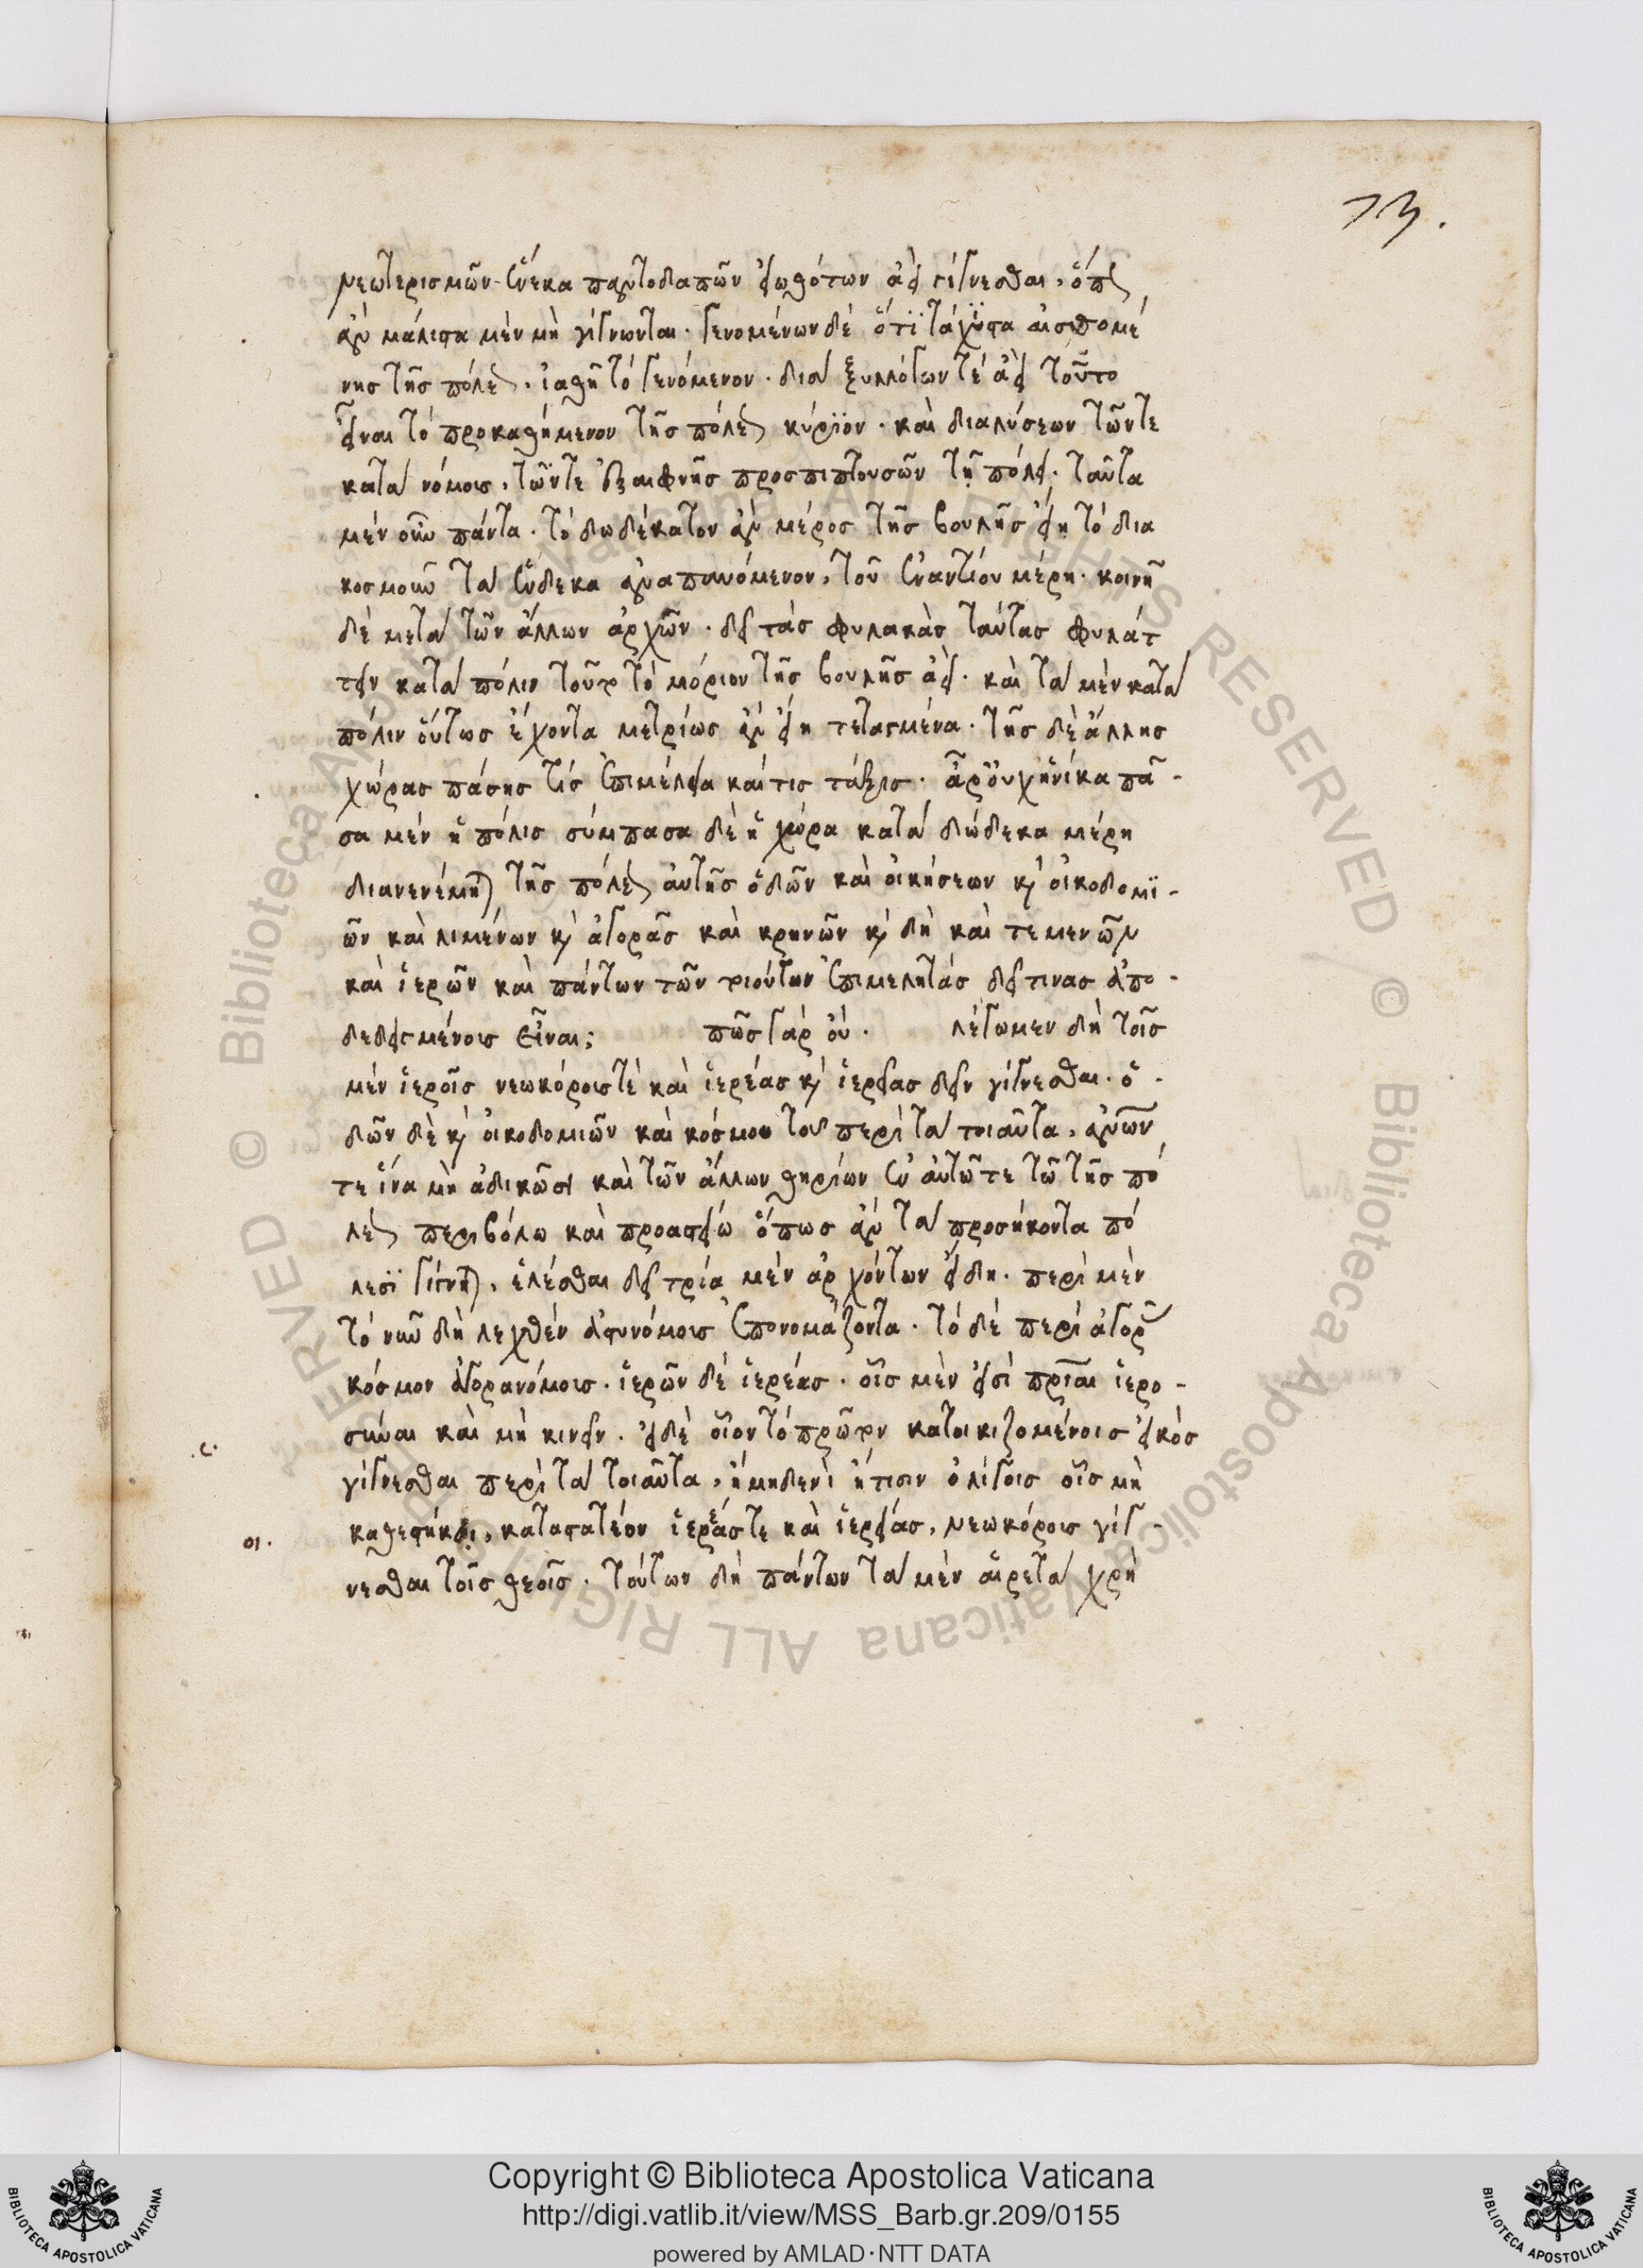 73.
νεωτερισμῶν ἕνεκα παντοδαπῶν εἰωθότων ἀεὶ γίγνεσθαι, ὅπως
ἂν μάλιστα μὲν μὴ γίγνωνται· γενομένων δὲ ὅτι τάχιστα αἰσθομέ
νης τῆς πόλεως, ἰαθῇ τὸ γενόμενον· διὰ ξυλλόγων τὲ ἀεὶ τοῦτο
εἶναι τὸ προκαθήμενον τῆς πόλεως κύριον· καὶ διαλύσεων τῶντε
κατὰ νόμους, τῶντε ἐξαιφνῆς προσπιπτουσῶν τῇ πόλει· ταῦτα
μὲν οὖν πάντα· τὸ δωδέκατον ἂν μέρος τῆς βουλῆς εἴη τὸ δια
κοσμοῦν τὰ ἕνδεκα ἀναπαυόμενον, τοῦ ἐναντίου μέρη· κοινῇ
δὲ μετὰ τῶν ἄλλων ἀρχῶν· δεῖ τὰς φυλακὰς ταύτας φυλάτ
τειν κατὰ πόλιν τοῦτο τὸ μόριον τῆς βουλῆς ἀεὶ· καὶ τὰ μὲν κατὰ
πόλιν οὕτως ἔχοντα μετρίως ἂν εἴη τεταγμένα· τῆς δὲ ἄλλης
χώρας πάσης τίς ἐπιμέλεια καί τις τάξις· ἆρ' οὐχ ἡνίκα πᾶ-
σα μὲν ἡ πόλις σύμπασα δὲ ἡ χώρα κατὰ δώδεκα μέρη
διανενέμηται τῆς πόλεως αὐτῆς ὁδῶν καὶ οἰκήσεων καὶ οἰκοδομϊ-
ῶν καὶ λιμένων καὶ ἀγορᾶς καὶ κρηνῶν καὶ δὴ καὶ τεμενῶν
καὶ ἱερῶν καὶ πάντων τῶν τοιούτων ἐπιμελητάς δεῖ τινας ἀπο-
δεδειγμένους εἶναι; πῶς γὰρ οὐ· λέγωμεν δὴ τοῖς
μὲν ἱεροῖς νεωκόρους τὲ καὶ ἱερέας καὶ ἱερείας δεῖν γίγνεσθαι· ὁ-
δῶν δὲ καὶ οἰκοδομιῶν καὶ κόσμου τοῦ περὶ τὰ τοιαῦτα, ἀνῶν
τε ἵνα μὴ ἀδικῶσι καὶ τῶν ἄλλων θηρίων ἐν αὐτῶ τε τῶ τῆς πό
λεως περιβόλω καὶ προαστείω ὅπως ἂν τὰ προσήκοντα πό
λεσϊ γίγνηται, ἑλέσθαι δεῖ τρία μὲν ἀρχόντων εἴδη· περὶ μὲν
τὸ νῦν δὴ λεχθὲν ἀστυνόμους ἐπονομάζοντα· τὸ δὲ περὶ ἀγορᾶς
κόσμον ἀγορανόμους· ἱερῶν δὲ ἱερέας· οἷς μὲν εἰσὶ πρῖαι ἱερο-
σύναι καὶ μὴ κινεῖν· εἰ δὲ οἷον τὸ πρῶτον κατοικιζομένοις εἰκὸς
.ς·
γίγνεσθαι περὶ τὰ τοιαῦτα, ἢ μηδενὶ ἤ τισιν ὀλίγοις οἷς μὴ
οι·
καθεστήκοι, καταστατέον ἱερέας τε καὶ ἱερείας, νεωκόρους γίγ-
νεσθαι τοῖς θεοῖς· τούτων δὴ πάντων τὰ μὲν αἱρετὰ χρὴ
© Biblioteca Apostolica Vaticana ALL RIGHTS RESERVED
Copyright © Biblioteca Apostolica Vaticana
http://digi.vatlib.it/view/MSS_Barb.gr.209/0155
powered by AMLAD·NTT DATA
BIBLIOTECA APOSTOLICA VATICANA
BIBLIOTECA APOSTOLICA VATICANA